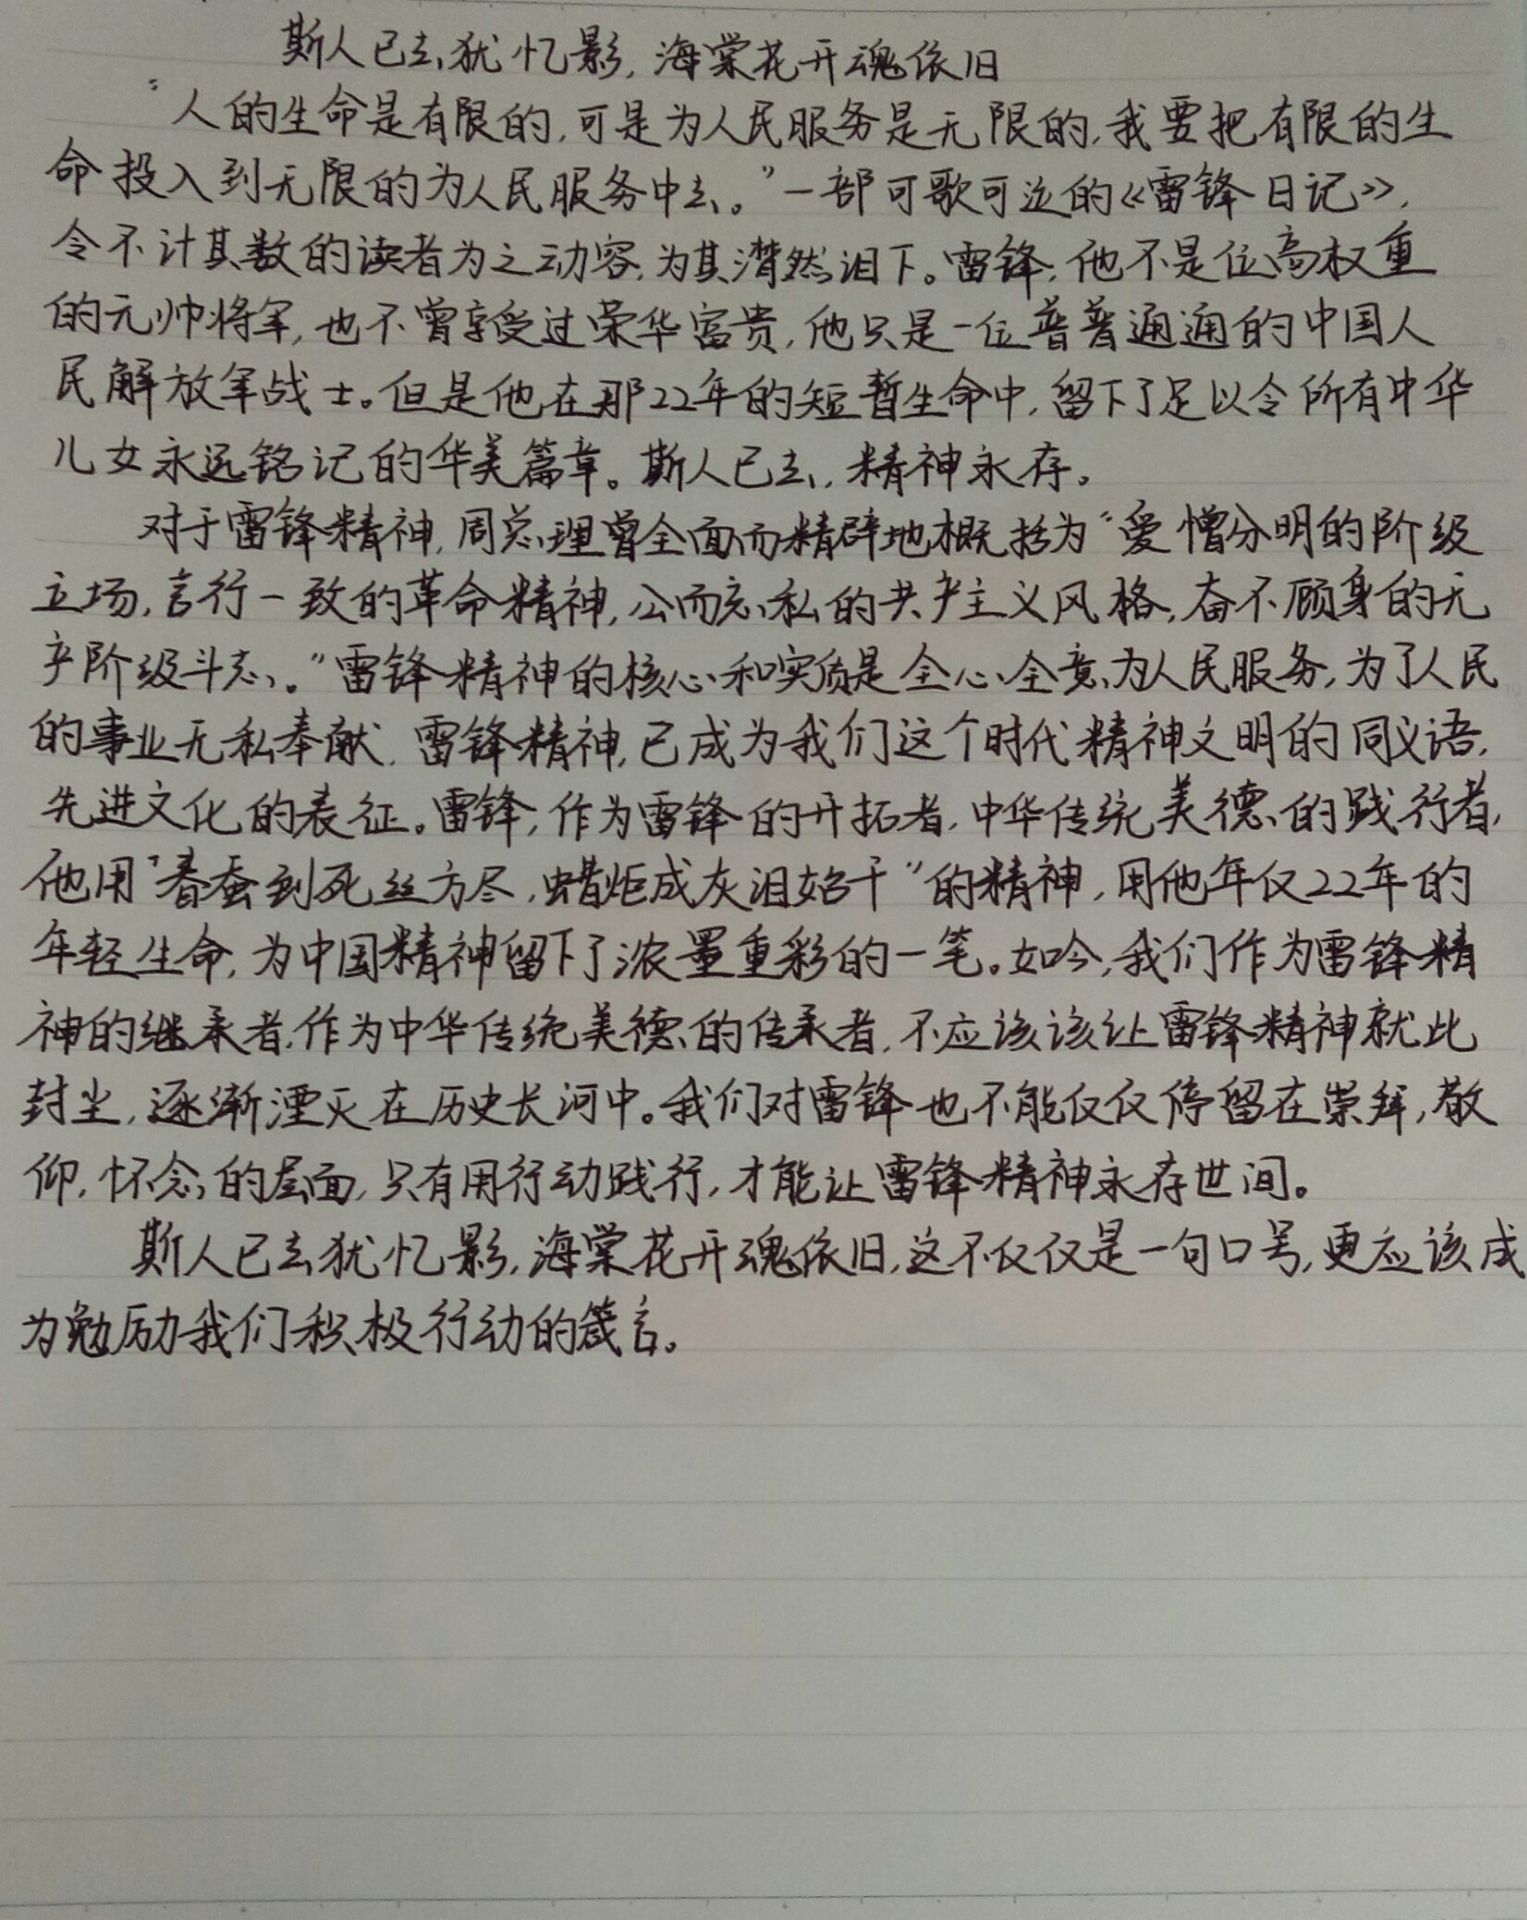 斯人已去犹忆影,海棠花开魂依旧
“人的生命是有限的,可是为人民服务是无限的,我要把有限的生
命投入到无限的为人民服务中去。”一部可歌可泣的《雷锋日记》,
令不计其数的读者为之动容,为其潸然泪下。雷锋,他不是位高权重
的元帅将军,也不曾享受过荣华富贵,他只是一位普普通通的中国人
民解放军战士。但是他在那22年的短暂生命中,留下了足以令所有中华
儿女永远铭记的华美篇章。斯人已去,精神永存。
对于雷锋精神,周总理曾全面而精辟地概括为“爱憎分明的阶级
立场,言行一致的革命精神,公而忘私的共产主义风格,奋不顾身的无
产阶级斗志。”雷锋精神的核心和实质是全心全意为人民服务,为了人民
的事业无私奉献.雷锋精神,已成为我们这个时代精神文明的同义语,
先进文化的表征。雷锋,作为雷锋的开拓者,中华传统美德的践行者,
他用“春蚕到死丝方尽,蜡炬成灰泪始干”的精神,用他年仅22年的
年轻生命,为中国精神留下了浓墨重彩的一笔。如今,我们作为雷锋精
神的继承者,作为中华传统美德的传承者,不应该该让雷锋精神就此
封尘,逐渐湮灭在历史长河中。我们对雷锋也不能仅仅停留在崇拜,敬
仰,怀念的层面,只有用行动践行,才能让雷锋精神永存世间。
斯人已去犹忆影,海棠花开魂依旧,这不仅仅是一句口号,更应该成
为勉励我们积极行动的箴言。